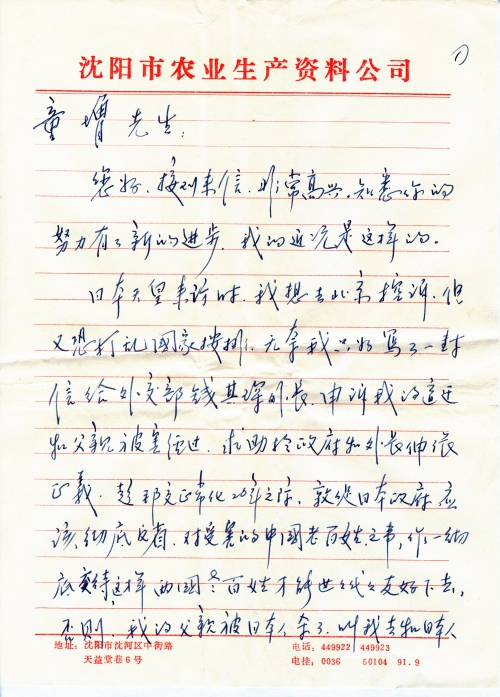 1)
沈阳市农业生产资料公司
童增先生:
您好.接到来信.非常高兴.知悉你的
努力有了新的进步.我的近况是这样的.
日本天皇来访时.我想去北京控诉.但
又恐打乱国家按排.无奈我只好写了一封
信给外交部钱其琛外长.申诉我的遭迂
和父親被害经过.求助於政府和外长伸张
正義.趁邦交正常化20年之际.敦促日本政府应
该彻底反省.对受害的中国老百姓之事,作一彻
底交待这样两国老百姓才能世世代代友好下去,
否则,我的父親被日本人杀了.叫我去和日本人
地址:沈阳市沈河区中街路
天益堂巷6号
电话:449922 449923
电挂:0036 50104 91.9